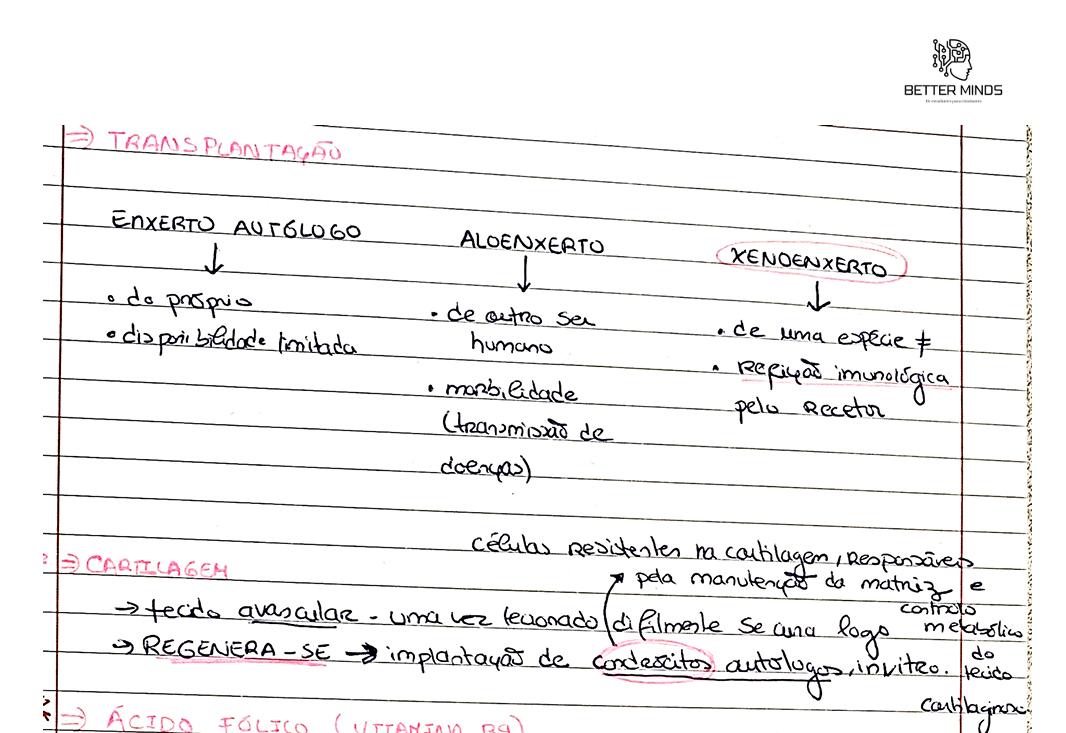 BETTER MINDS
De estudantes para estudantes
⇒ TRANSPLANTAÇÃO
ENXERTO AUTÓLOGO
↓
• do próprio
• disponibilidade limitada
ALOENXERTO
↓
• de outro ser
humano
• morbilidade
(transmissão de
doenças)
XENOENXERTO
↓
• de uma espécie ≠
• Rejeição imunológica
pelo Recetor
⇒ CARTILAGEM
células Residentes na cartilagem, Responsáveis
pela manutenção da matriz e
controlo
metabólico
do
tecido
cartilagíneo
→ tecido avascular - uma vez lesionado dificilmente se cura logo
→ REGENERA-SE → implantação de condrócitos autólogos, invitro.
⇒ ÁCIDO FÓLICO (VITAMINA B9)